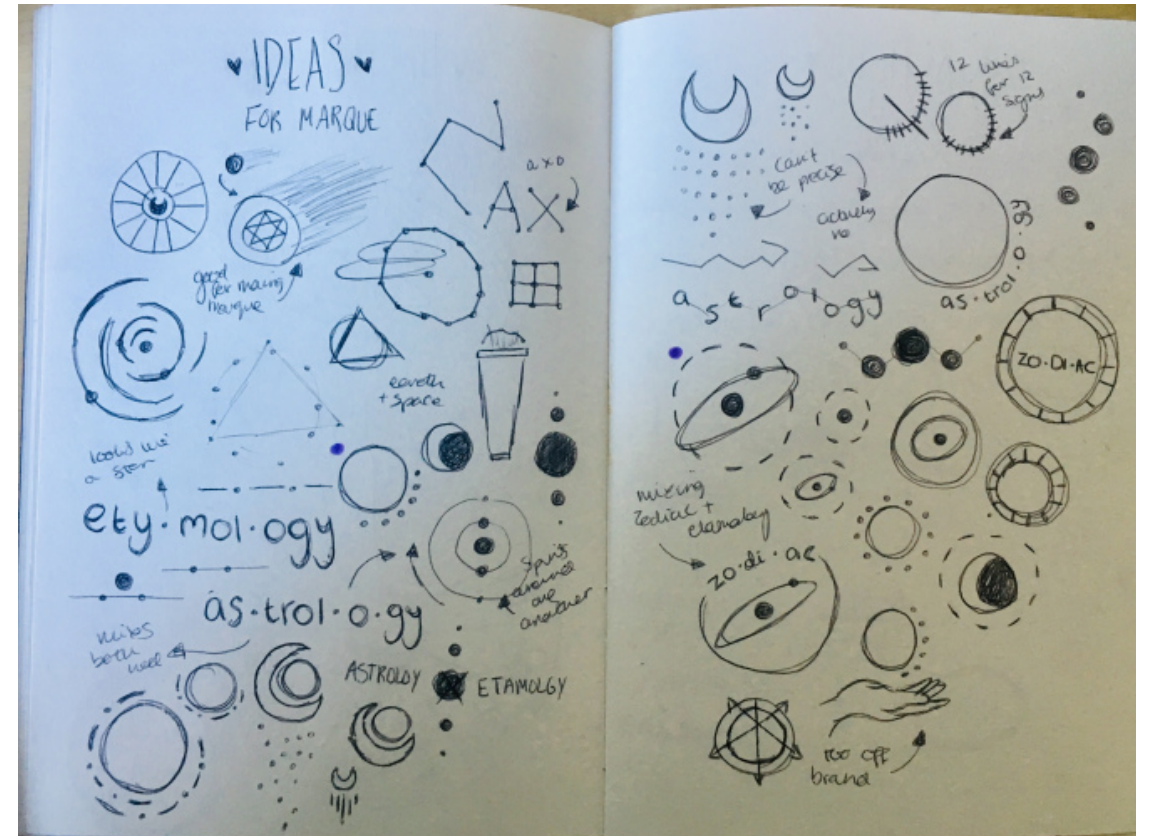 IDEAS
FOR MARQUE
a x o
AX
good
for moving
marque
earth
+ space
looks like
a star
ety·mol·ogy
as·trol·o·gy
spirits
around
one
another
mixes
both
well
ASTROLOY
ETAMOLGY
12 lines
for 12
signs
can't
be precise
actually
no
as·trol·o·gy
astrology
ZO·DI·AC
mixing
zodiac +
etamology
zo·di·ac
too off
brand